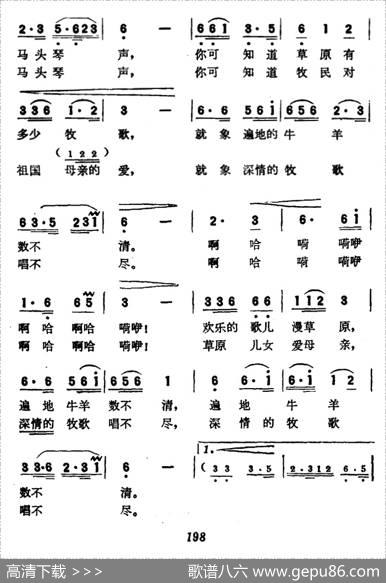 2·3 5·623 6 — 661 3·5 6 1 2
马头琴 声， 你可 知道 草原有
马头琴 声， 你可 知道 牧民对
336 1·2 3 — 6·6 561 656 2·3
多少 牧 歌， 就象 遍地的 牛 羊
(122)
祖国 母亲的 爱， 就象 深情的 牧 歌
63·5 231 6 — 2· 3 6· 61
数不 清。 啊 哈 嗬 嗬咿
唱不 尽。 啊 哈 嗬 嗬咿
1·6 65 3 — 336 66 112 3
啊 哈 啊哈 嗬咿！ 欢乐的 歌儿 漫草 原，
啊 哈 啊哈 嗬咿！ 草原 儿女 爱母 亲，
6·6 561 656 1 6·6 561 1 2
遍 地 牛羊 数不 清， 遍 地 牛 羊
深情的 牧歌 唱不 尽， 深 情 的 牧 歌
336 2·31 6 — 1. (33 3·5 2·312 6·5
数不 清。
唱不 尽。
198
高清下载 >>> 歌谱八六 www.gepu86.com